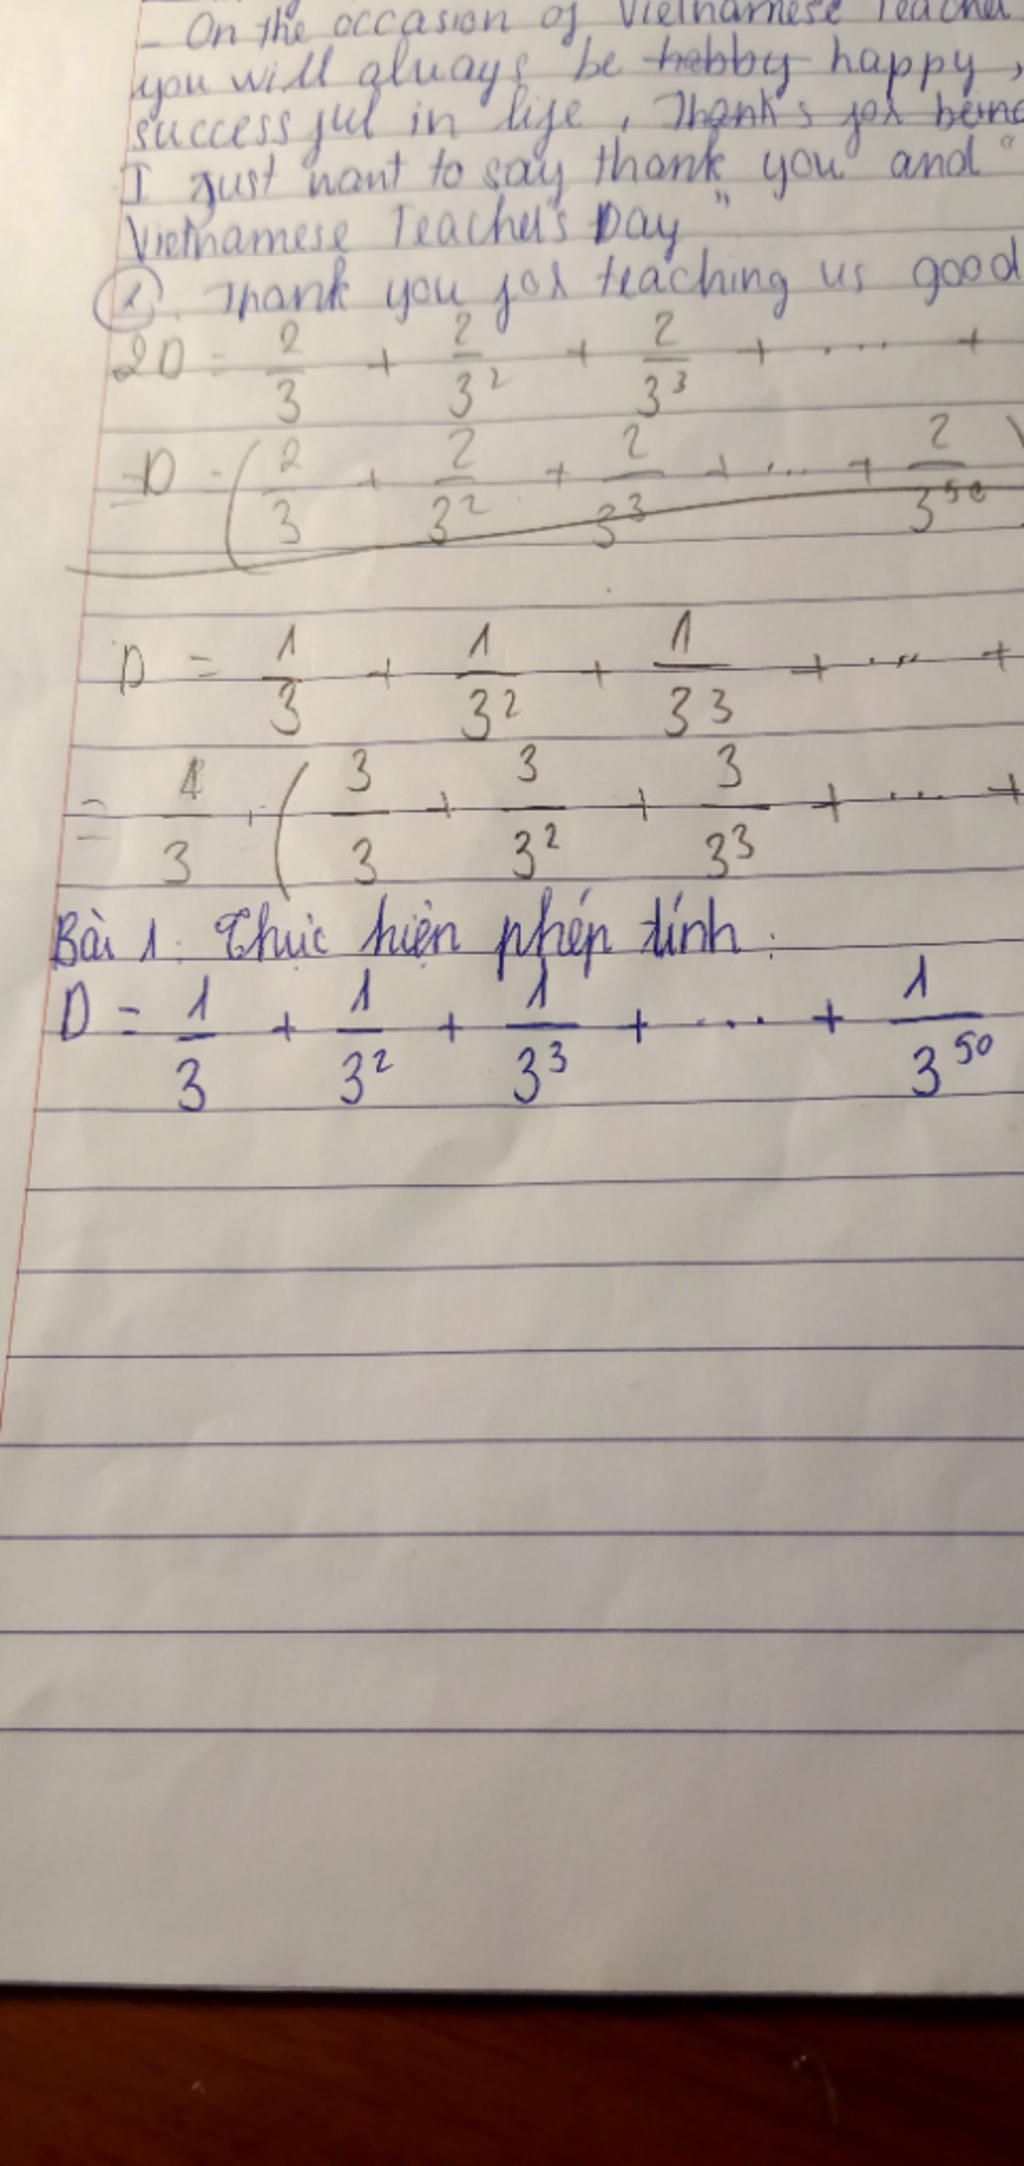 - On the occasion of Vietnamese Teacher
you will always be hobby happy,
successful in life, Thanks for being
I just want to say thank you and "
Vietnamese Teacher's Day"
2. Thank you for teaching us good
2D = 2/3 + 2/3² + 2/3³ + .... +
=D = (2/3 + 2/3² + 2/3³ + ... + 2/3⁵⁰)
D = 1/3 + 1/3² + 1/3³ + .... +
= 1/3 . (3/3 + 3/3² + 3/3³ + .... +
Bài 1. Thực hiện phép tính:
D = 1/3 + 1/3² + 1/3³ + .... + 1/3⁵⁰